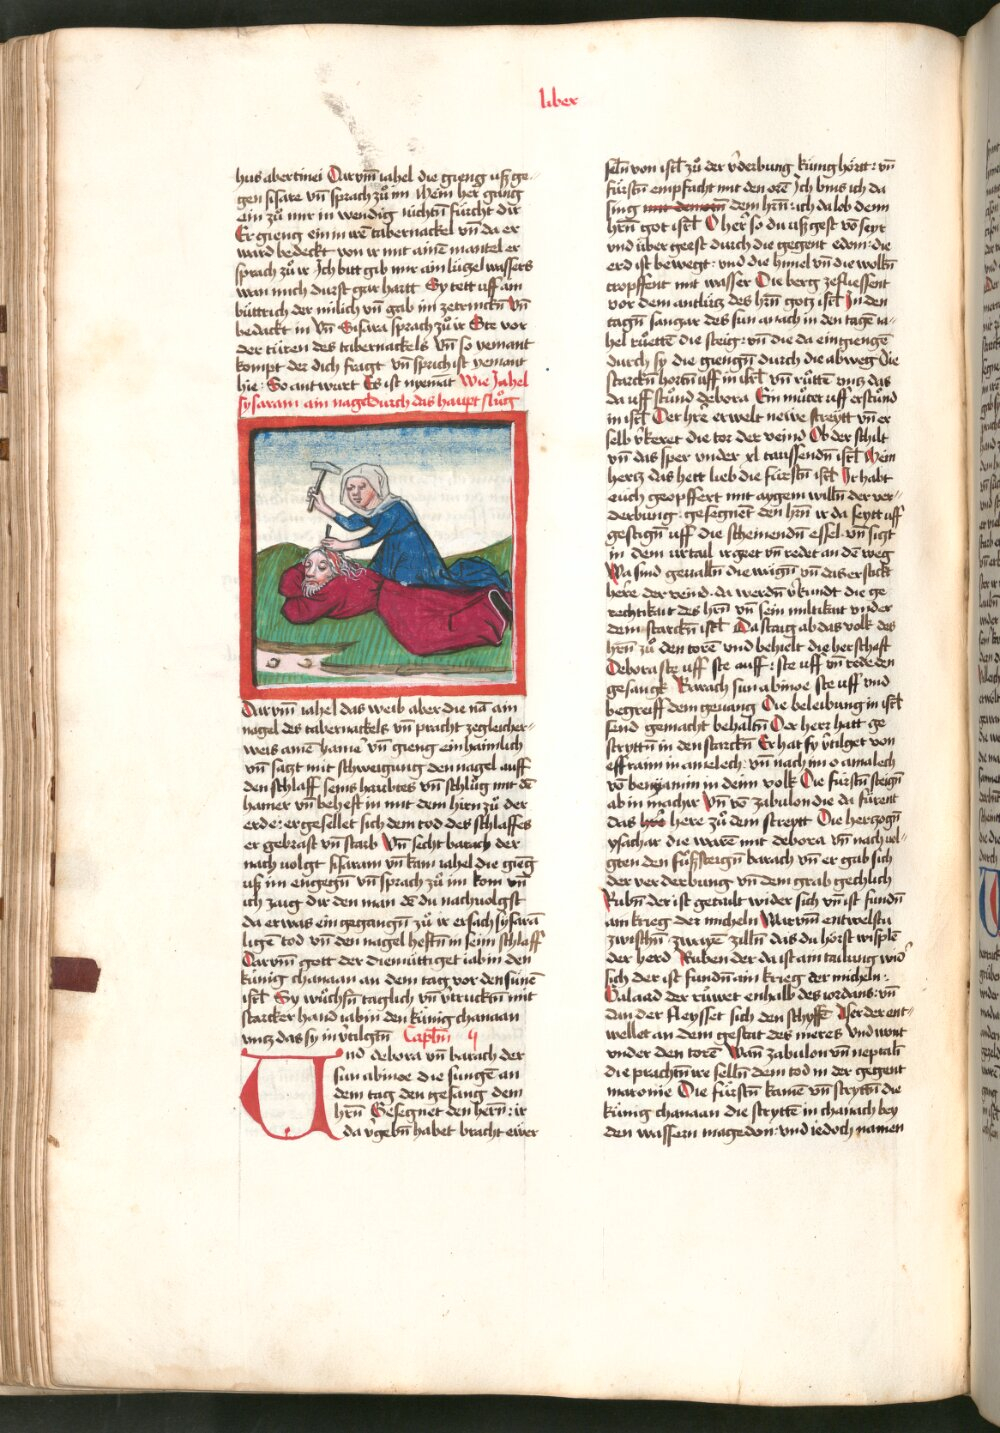 liber
hus abertinei Darvm̄ iahel die gieng usz ge-
gen sisare vn̄ sprach zů im Mein her gang
ein zů mir in wendig nüchtn̄ fürcht dir
Er gieng ein in irē tabernackel vn̄ da er
ward bedeckt von ir mit ainē mantel er
sprach zů ir Ich bitt gib mir ain lützel wassers
wan mich durst gar hartt Sy tett uff ain
büttrich der milich vn̄ gab im zetrinckn̄ Vn̄
bedackt in Vn̄ Sisara sprach zů ir Ste vor
der türen des tabernackels Vn̄ so yemant
kompt der dich fragt vn̄ sprich ist yemant
hie: So antwurt Es ist nyemāt Wie Jahel
sysaram ain nagel durch das haupt slůg
Darvm̄ iahel das weib aber die nā ain
nagel des tabernackels vn̄ pracht zegleicher-
weis ainē hamē vn̄ gieng ein haimlich
vn̄ satzt mit schweigung den nagel auff
den schlaff seins haubtes vn̄ schlůg mit dē
hamer vn̄ beheft in mit dem hirn zů der
erde: er gesellet sich dem tod des schlaffes
er gebrast vn̄ starb Vn̄ secht barach der
nach uolgt sisaram vn̄ kam iahel die gieg
usz im engegn̄ vn̄ sprach zů im kom vn̄
ich zaig dir den man dē du nachuolgst
da er was ein gegangn̄ zů ir er sach sysarā
ligē tod vn̄ den nagel hefftn̄ in seim schlaff
Darvm̄ gott der diemüttiget iabin den
künig chanaan an dem tag vor den sünē
isrl̄ Sy wůchsn̄ täglich vn̄ vtrucktn̄ mit
starcker hand iabin den künig chanaan
vntz das sy in v̄tilgtn̄ Capl̄m
Und debora vn̄ barach der
sun abinoe die sungē an
dem tag den gesang dem
hrn̄ Gesegnet den hern̄: ir
da v̄gebn̄ habet bracht ewer
seln̄ von isrl̄ zů der v̄derbung künig hörtt: vn̄
fürstn̄ empfacht mit den orē Ich bins ich da
sing dem hrn̄: ich da lob denn
hrn̄ got isrl̄ O her so du usz gest vō seyr
vnd über geest durch die gegent edom: die
erd ist bewegt: vnd die himel vn̄ die wolkn̄
tropffent mit wasser Die berg zefluessent
vor dem antlütz des hrn̄ gotz isrl̄ In den
tagn̄ sangar des sun anach in den tagē ia-
hel rüettē die steig: vn̄ die da ein giengē
durch sy die giengn̄ durch die abweg Die
starckn̄ hortn̄ uff in isrl̄ vn̄ rüttē vntz das
da uff stůnd debora Ein můter uff erstůnd
in isrl̄ Der hrē erwelt newe streytt vn̄ er
selb v̄keret die tor der veind Ob der schilt
vn̄ das sper vnder xl taussendn̄ isrl̄ Mein
hertz das hett lieb die fürstn̄ isrl̄ Ir habt
euch geopffert mit aygem willn̄ der ver-
derbung: gesegnet den hrn̄ ir da seytt uff
gestign̄ uff die scheinendn̄ essel vn̄ sitzt
in dem urtail ir geet vn̄ redet an dē weg
Wa sind geualln̄ die wägn̄ vn̄ das erstickt
here der veind da werdn̄ v̄kündt die ge
rechtikait des hrn̄ vn̄ sein miltikait vnder
dem starckn̄ isrl̄ Da staig ab das volk des
hrn̄ zů den torē vnd behielt die herschaft
Debora ste uff ste auff: ste uff vn̄ rede den
gesangk Barach sun abinoe ste uff vnd
begreiff dem gevang Die beleibung in isrl̄
seind gemacht behaltn̄ Der herr hatt ge
stryttn̄ in den starckn̄ Er hat sy v̄tilget von
effraim in amelech: vn̄ nach im o amalech
vō beniamin in deinn volk Die fürstn̄ steign̄
ab in machir Vn̄ vō zabulon die da fürent
das here zů dem streytt Die hertzogn̄
ysachar die warē mit debora vn̄ nach uol-
gten den fůszsteign̄ barach vn̄ er gab sich
der verderbung vn̄ dem grab gechlich
Rubn̄ der ist getailt wider sich vn̄ ist fundn̄
am krieg der micheln Warvm̄ entwelstu
zwischn̄ zwayē zilln̄ das du hörst wisple
der herd Ruben der da ist am tailung wid̄
sich der ist fundn̄ ain krieg der micheln:
Galaad der růwet enhalb des iordans: vn̄
dan der fleysset sich den schyffē Aser der ent-
wellet an dem gestat des meres vnd wont
vnder den torē Wan̄ zabulon vn̄ neptali
die prachtn̄ ire selln̄ dem tod in der gegent
maromie Die fürstn̄ kamē vn̄ stryttn̄ die
künig chanaan die stryttē in thanach bey
den wassern magedon: vnd iedoch namen